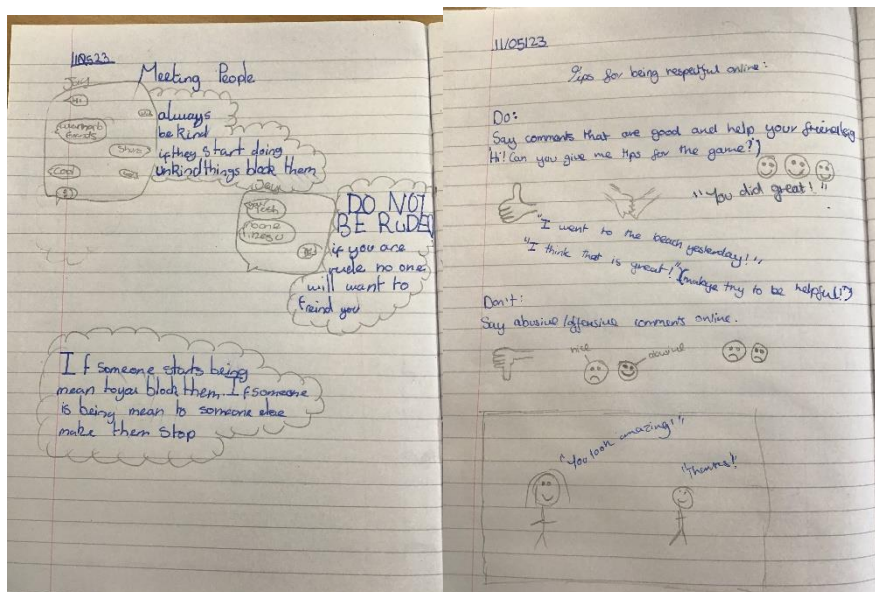 Meeting People
Jay
Hi
always
be kind
if they start doing
unkind things block them
Cool
DO NOT
BE RUDE
if you are
rude no one
will want to
freind you
If someone starts being
mean to you block them. If someone
is being mean to someone else
make them stop
11/05/23
Tips for being respectful online:
Do:
Say comments that are good and help your friends
Hi! Can you give me tips for the game?")
"You did great!"
"I went to the beach yesterday!"
"I think that is great!" try to be helpful!")
Don't:
Say abusive/offensive comments online.
nice
abusive
"You look amazing!"
"Thanks!"